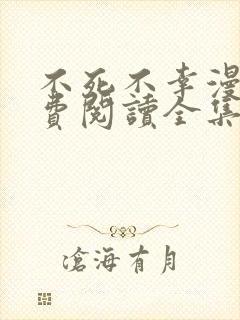 不死不幸漫
費閱讀全集
滄海有月